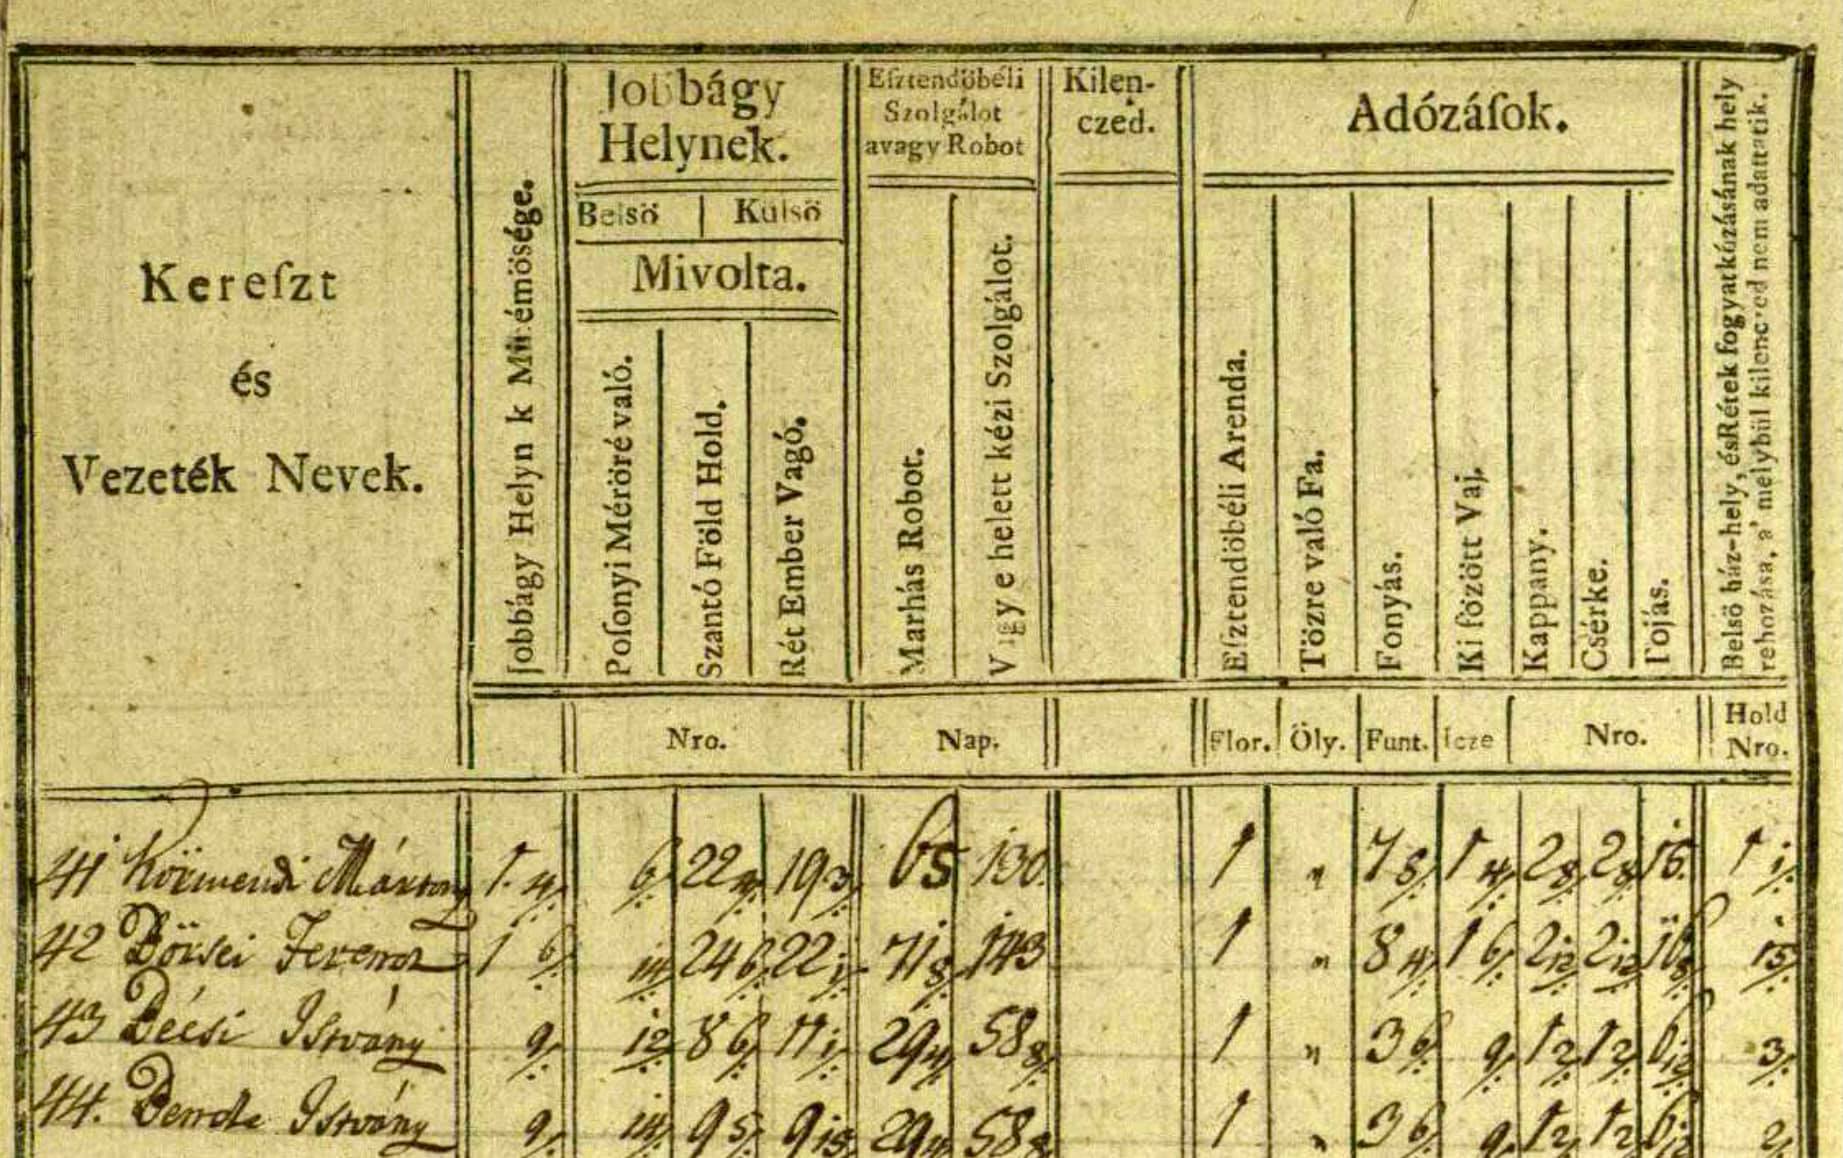 Kereſzt
és
Vezeték Nevek.
Jobbágy Helyn k Minémösége.
Jobbágy
Helynek.
Belsö Külsö
Mivolta.
Poſonyi Méröré való.
Szantó Föld Hold.
Rét Ember Vagó.
Eſztendöbéli
Szolgálot
avagy Robot
Marhás Robot.
Vagy e helett kézi Szolgálot.
Kilen-
czed.
Adózáſok.
Eſztendöbéli Arenda.
Tözre való Fa.
Fonyás.
Ki fözött Vaj.
Kappany.
Csérke.
Tojás.
Belsö ház-hely, és Rétek fogyatkozásának hely
rehozása, a' melybül kilenczed nem adattatik.
Nro. Nap. Flor. Öly. Funt. Icze Nro. Hold
Nro.
41 Körmendi Márton 1. 4/. 6/. 22 4/. 19 3/. 65 130. 1 " 7 8/. 1 4/. 2 8/. 2 8/. 15. 1 1/.
42 Börsei Ferencz 1 6/. 14/. 24 6/. 22 1/. 71 8/. 143 1 " 8 4/. 1 6/. 2 12/. 2 12/. 16 8/. 15/.
43 Décsi Istvány 9/. 12/. 8 6/. 11 1/. 29 4/. 58 8/. 1 " 3 6/. 9/. 1 2/. 1 2/. 6 12/. 3/.
44. Istvány 9/. 14/. 9 5/. 9 15/. 29 4/. 58 8/. 1 " 3 6/. 9/. 1 2/. 1 2/. 6 12/. 2/.